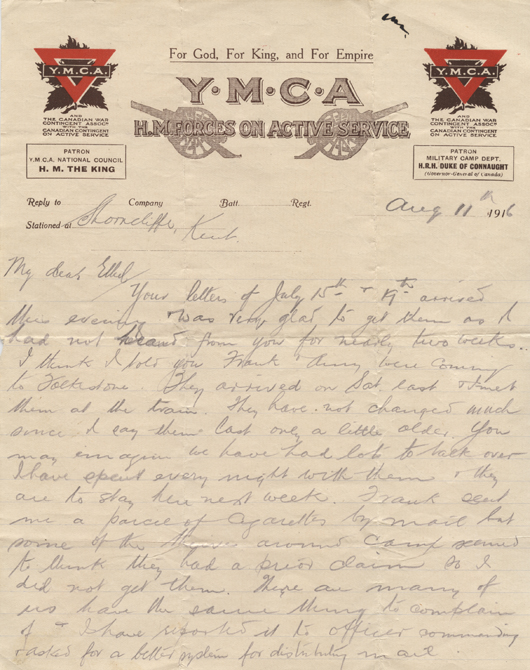 For God, For King, and For Empire
Y.M.C.A.
AND
THE CANADIAN WAR
CONTINGENT ASSOCN
WITH THE
CANADIAN CONTINGENT
ON ACTIVE SERVICE
PATRON
Y.M.C.A. NATIONAL COUNCIL
H. M. THE KING
Y·M·C·A
H.M. FORCES ON ACTIVE SERVICE
Y.M.C.A.
AND
THE CANADIAN WAR
CONTINGENT ASSOCN
WITH THE
CANADIAN CONTINGENT
ON ACTIVE SERVICE
PATRON
MILITARY CAMP DEPT.
H.R.H. DUKE OF CONNAUGHT
(Governor-General of Canada)
Reply to Company Batt. Regt.
Aug 11th 1916
Stationed at Shorncliffe, Kent
My dear Ethel
Your letters of July 15th & arrived
this evening was very glad to get them as I
had not heard from you for nearly two weeks.
I think I told you Frank & Amy were coming
to Folkstone. They arrived on Sat last & I met
them at the train. They have not changed much
since I say them last only a little older. You
may emagion we have had lots to talk over
I have spent every night with them & they
are to stay here next week. Frank sent
me a parcel of Cigarettes by mail but
some of the around Camp seemed
to think they had a prior claim so I
did not get them. There are many of
us have the same thing to complain
of & I have reported it to officer commanding
& asked for a better system for distributing mail.